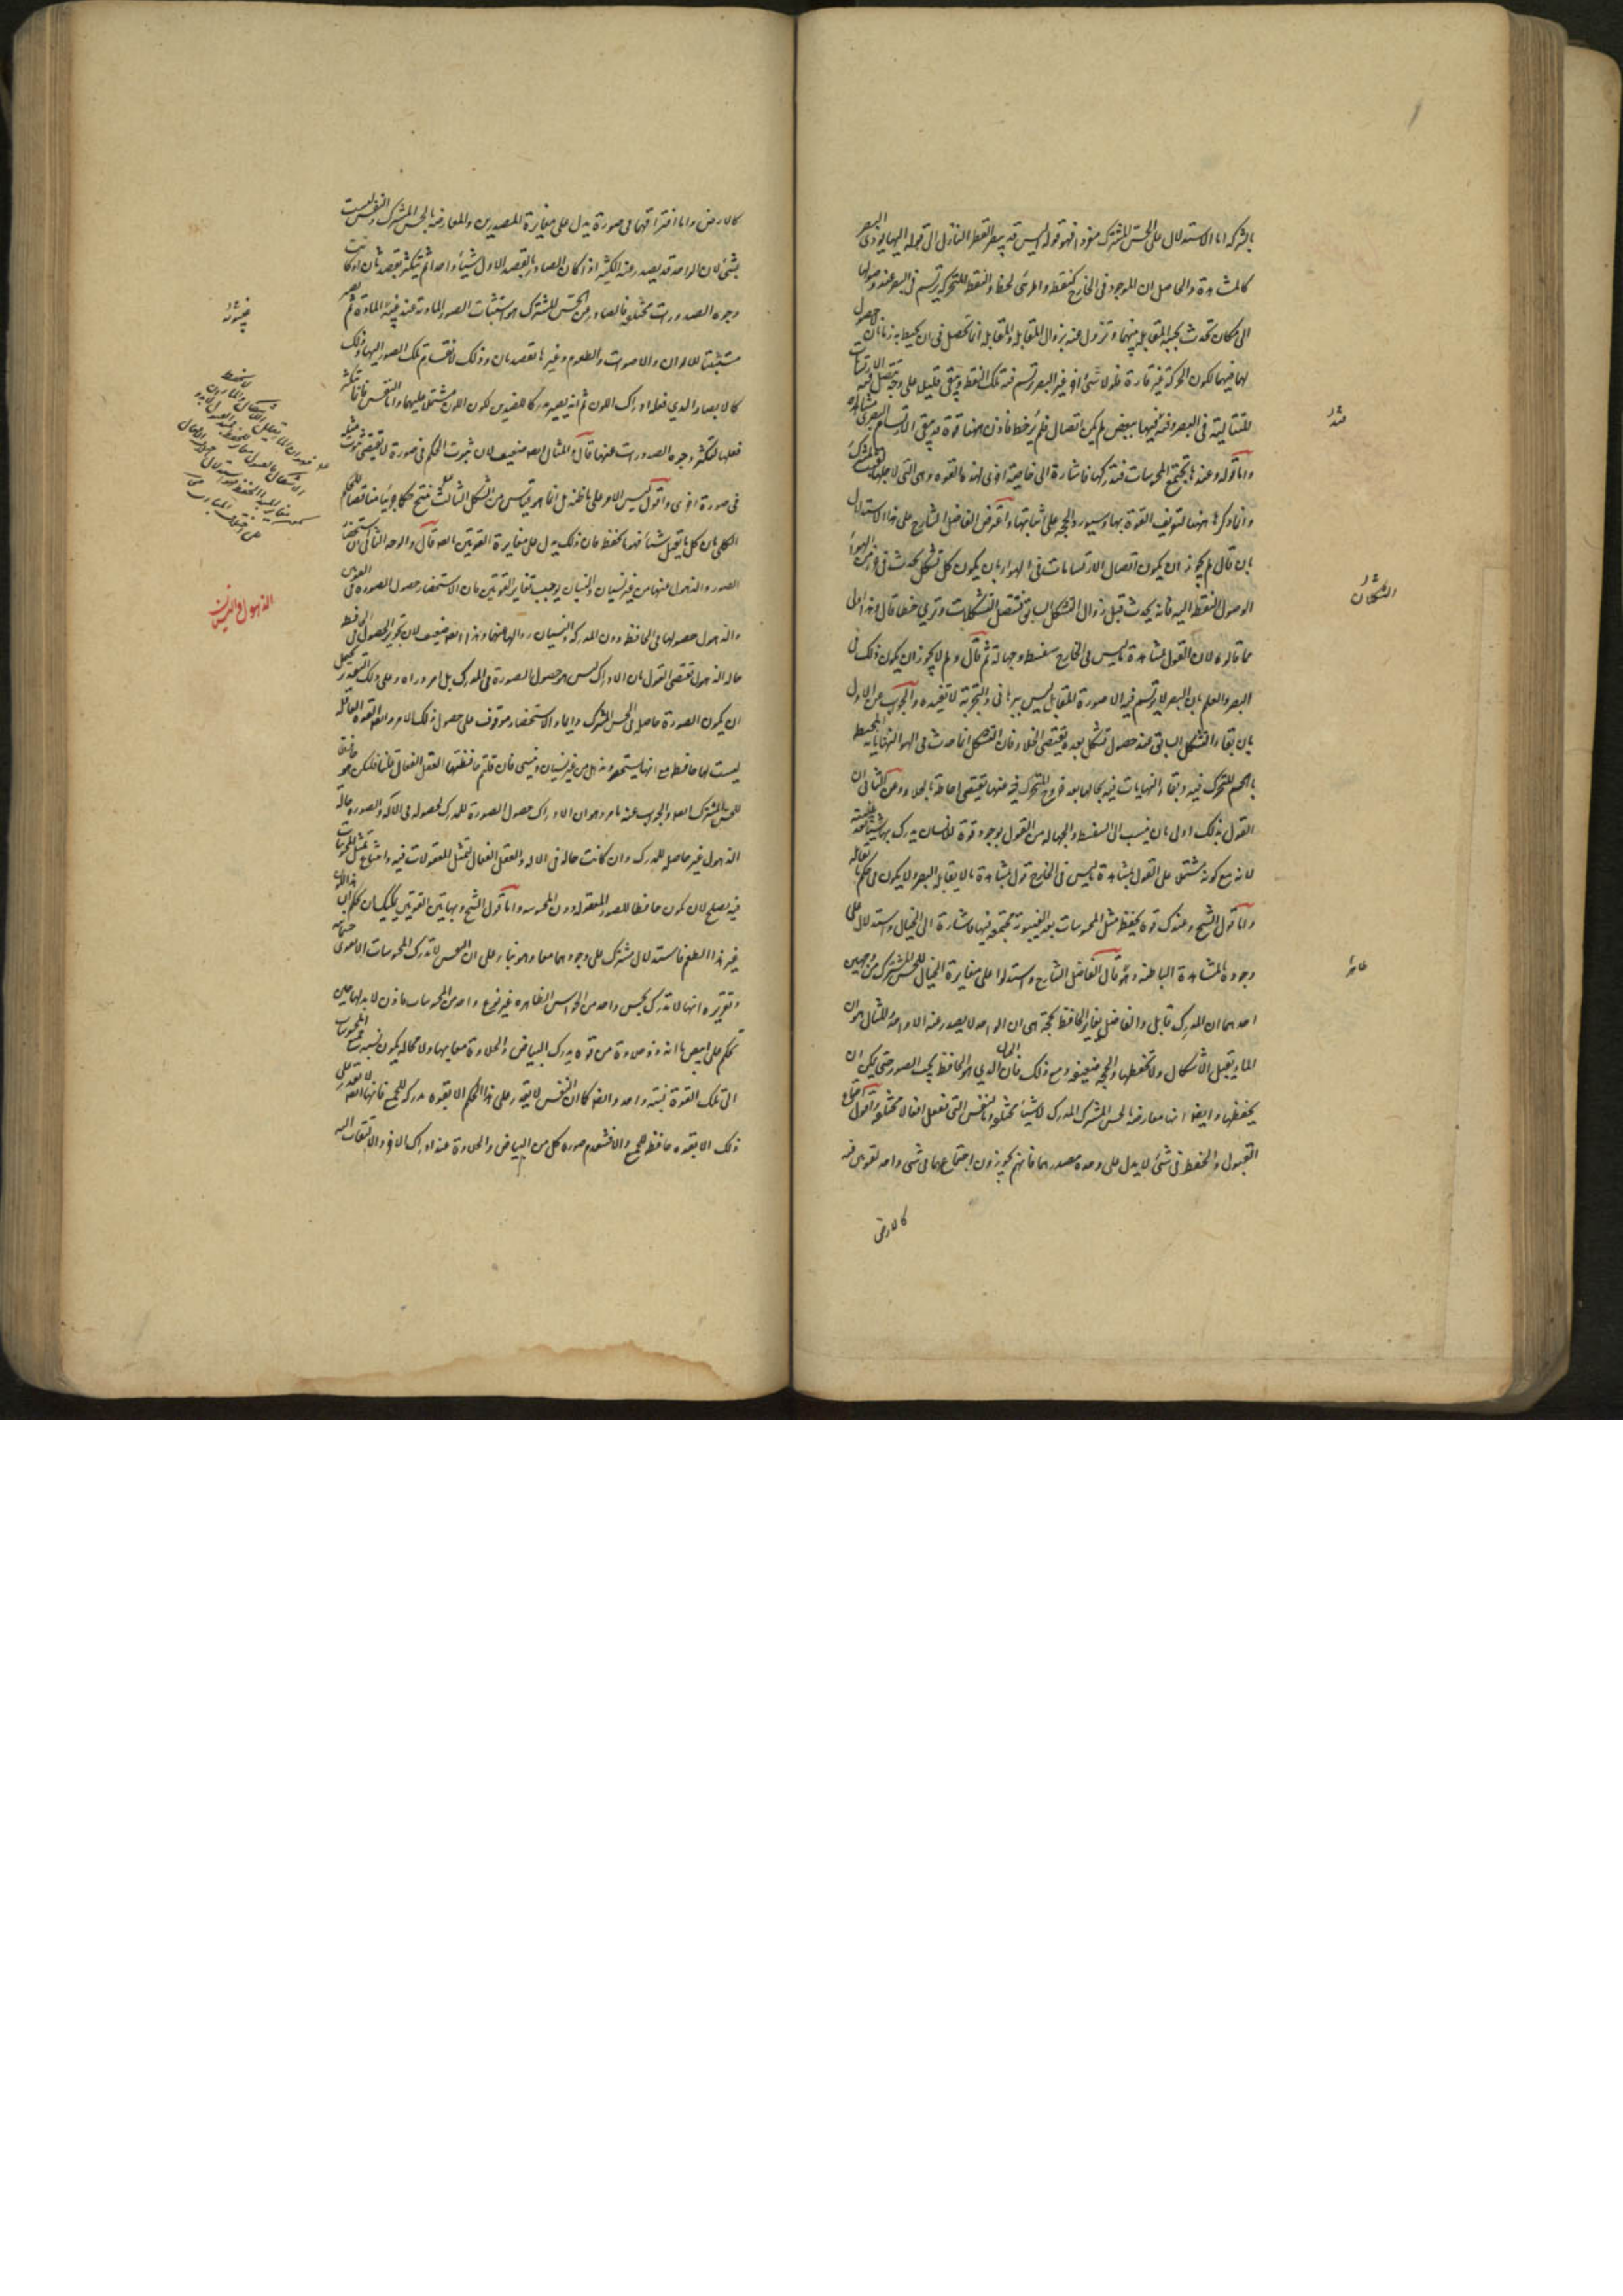 بالشركة اما الاستدلال على الحس المشترك منفردا فهو قوله اليس قد يبصر القطر النازل الى قوله اليها يؤدى البصر
كالمشاهدة والحاصل ان الموجود فى الخارج كنقطة والمرئى كخط والنقطة المتحركة يرتسم فى البصر عند وصولها
الى مكان تحدث بحسبه المقابلة بينهما وتزول عنه بزوال المقابلة والمقابلة انما تحصل فى ان يحيط به زمانان حصول
لها فيهما لكون الحركة غير قارة فلولا شئ اخر غير البصر ترتسم فيه تلك النقطة ويبقى قليلا على وجه تتصل الارتسامات
المتتالية فى البصر فيه فيها بعضها ببعض لم يكن اتصال فلم ير خطا فاذن ههنا قوة قد يبقى الارتسام البصرى
واما قوله وعندها تجتمع المحسوسات فتدركها فاشارة الى خاصية اخرى لهذه القوة وهى التى لاجلها
وانما ذكرها ههنا لتوقيف القوة بها وسيورد الحجة على اثباتها واعترض الفاضل الشارح على هذا الاستدلال
بان قال لم لا يجوز ان يكون اتصال الارتسامات فى الهواء بان يكون كل تشكل يحدث فى جزء من الهواء
لوصول النقطة اليه فانه يحدث قبل زوال التشكل السابق فتتصل التشكلات وترى خطا قال وهذا اولى
مما قالوه لان القول بمشاهدة ما ليس فى الخارج سفسطة وجهالة ثم قال ولم لا يجوز ان يكون ذلك فى
البصر والعلم بان البصر لا يرتسم فيه الا صورة المقابل ليس ببرهانى والتجربة لا تفيده والجواب عن الاول
بان بقاء التشكل السابق عند حصول تشكل بعده يقتضى الخلاء فان التشكل انما حدث فى الهواء لنهاياته المحيطة
بالجسم المتحرك فيه وبقاء النهايات فيه بحالها بعد خروج المتحرك فيه عنها يقتضى احاطتها بالخلاء وعن الثانى ان
القول بذلك اولى بان ينسب الى السفسطة والجهالة من القول بوجود قوة للانسان يدرك بها شيئا
لانه مع كونه مشتملا على القول بمشاهدة ما ليس فى الخارج قول بمشاهدة ما لا يقابله البصر ولا يكون فى حكم ما يقابله
واما قول الشيخ وعندك قوة تحفظ مثل المحسوسات بعد الغيبوبة مجتمعة فيها فاشارة الى الخيال واستدلال على
وجوده بالمشاهدة الباطنة وهو قال الفاضل الشارح واستدلوا على مغايرة الخيال للحس المشترك من وجهين
احدهما ان المدرك قابل والقابل يغاير الحافظ بحجة هى ان الواحد لا يصدر عنه الا واحد ولمثال هو ان
الماء يقبل الاشكال ولا يحفظها والحجة ضعيفة ومع ذلك فان الخيال الذى هو الحافظ يجب الصور حتى يمكن ان
يحفظها وايضا انها معارضة بالحس المشترك المدرك لاشياء مختلفة وبالنفس التى تفعل افعالا مختلفة واقول اجتماع
القبول والحفظ فى شئ لا يدل على وحدة مصدرهما فانهم يجوزون اجتماعهما فى شئ واحد لقوتين فيه
كالارض
الشكلان
ظاهرا
كالارض واما افتراقهما فى صورة يدل على مغايرة المصدرين والمعارضة بالحس المشترك والنفس ليست
بشئ لان الواحد قد يصدر عنه الكثير اذا كان الصادر بالقصد الاول شيئا واحدا ثم يتكثر بقصد ثان او كانت
وجوه الصدورات مختلفة فالصادر من الحس المشترك هو استثبات الصور المادية عند غيبة المادة ثم
مستثبتا للالوان والاصوات والطعوم وغيرها بقصد ثان وذلك لانقسام تلك الصور اليها وذلك
كالابصار الذى فعله ادراك اللون ثم انه يصير مدركا للضدين لكون اللون مشتملا عليهما واما النفس فانما تتكثر
فعلها لتكثر وجوه الصدورات عنها قال والمثال ايضا ضعيف لان ثبوت الحكم فى صورة لا يقتضى ثبوت مثله
فى صورة اخرى واقول ليس الامر على ما ظنه بل انما هو قياس من الشكل الثالث ينتج حكما جزئيا مناقضا للحكم
الكلى بان كل ما يقبل شيئا فهو يحفظه فان ذلك يدل على مغايرة القوتين ايضا قال والوجه الثانى ان استحضار
الصور والذهول عنها من غير نسيان والنسيان يوجب تغاير القوتين فان الاستحضار حصول الصورة فى القوتين
والذهول حصولها فى الحافظة دون المدركة والنسيان زوالها عنهما وهذا ايضا ضعيف لان تجويز الحصول فى الحافظة
حالة الذهول يقتضى القول بان الادراك ليس هو حصول الصورة فى المدرك بل امر وراءه وعلى ذلك التقدير يحتمل
ان يكون الصورة حاصلة فى الحس المشترك دائما والاستحضار موقوف على حصول ذلك الامر وايضا القوة العاقلة
ليست لها حافظة مع انها يستحضر وتذهل من غير نسيان وتنسى فان قلتم حافظتها العقل الفعال قلنا فليكن هو حافظا
للحس المشترك ايضا والجواب عنه ما مر وهو ان الادراك حصول الصورة للمدرك لحصوله فى الآلة والصورة حالة
الذهول غير حاصلة للمدرك وان كانت حالة فى الآلة والعقل الفعال لتمثل المعقولات فيه وامتناع تمثل المحسوسات
فيه يصلح لان يكون حافظا للصور المعقولة دون المحسوسة واما قول الشيخ وبهاتين القوتين يمكنك ان تحكم ان هذا اللون
غير هذا الطعم فاستدلال مشترك على وجودهما معا وهو بناء على ان الحس لا تدرك المحسوسات
وتقريره انها لا تدرك بحس واحد من الحواس الظاهرة غير نوع واحد من المحسوسات فاذن لا بد لها حين
تحكم على ابيض ما انه ذو حلاوة من قوة يدرك البياض والحلاوة معا بها ولا محالة يكون نسبة المحسوسات
الى تلك القوة نسبة واحدة وايضا كما ان النفس لا يقدر على هذا الحكم الا بقوة مدركة للجميع فانها ايضا لا تقدر على
ذلك الا بقوة حافظة للجميع والا فتنعدم صورة كل من البياض والحلاوة عند ادراك الاخر والالتفات اليه
الذهول والنسيان